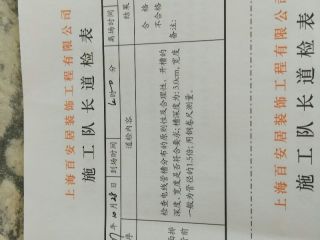 上海百安居装饰工程有限公司
施工队长道检表
10月28日 到场时间 离场时间
道检内容 结果
检查电线管槽分布的原则性及合理性、开槽的
深度、宽度是否符合要求;槽深度为:3.0cm,宽度
一般为管径的1.5倍;用钢卷尺测量。
合格
不合格
备注:
上海百安居装饰工程有限公司
施工队长道检表